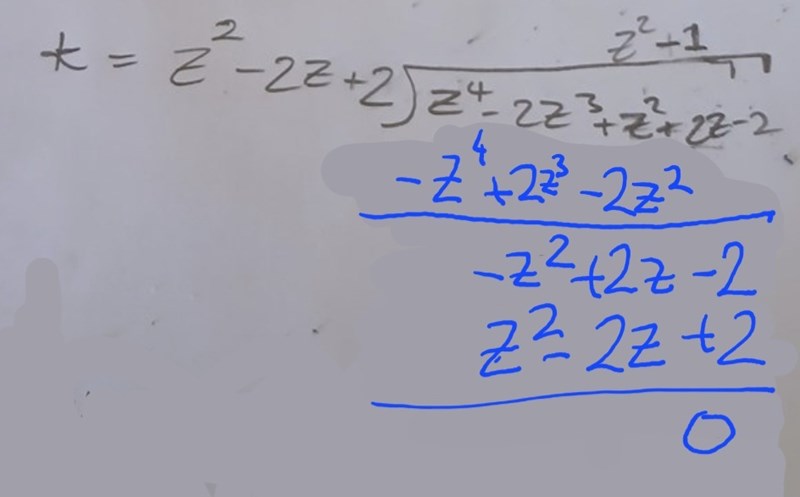 z² - 1
t = z² - 2z + 2 ) z⁴ - 2z³ + z² + 2z - 2
- z⁴ + 2z³ - 2z²
- z² + 2z - 2
z² - 2z + 2
0